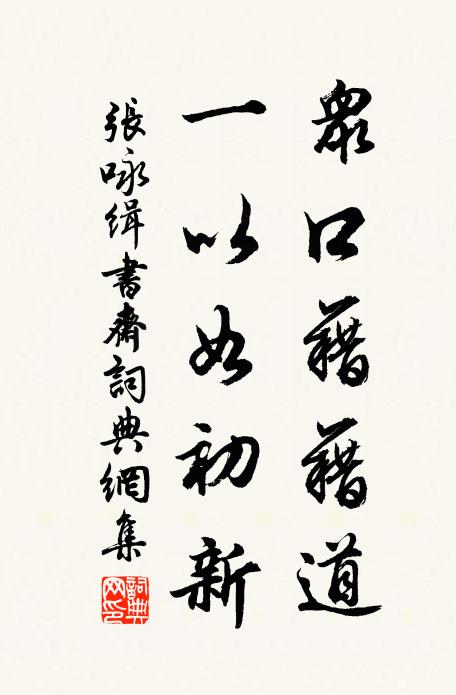 眾口藉藉道
一以如初新
張咏緝書齋詞典網集
詞典網印